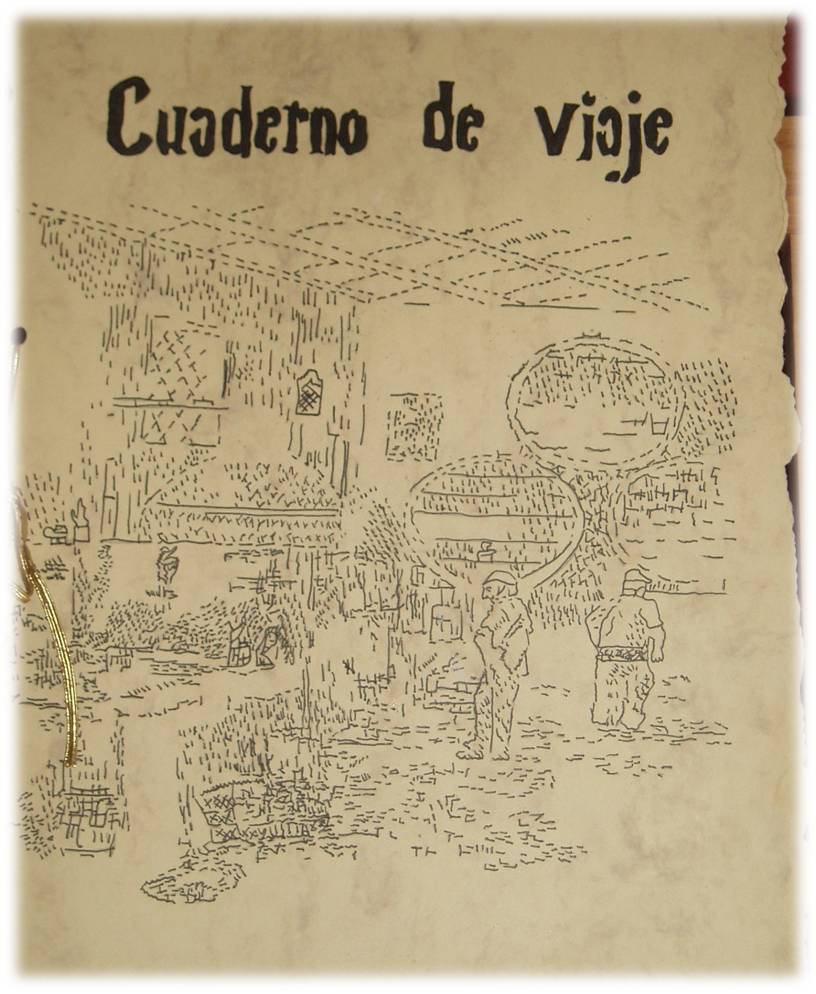 Cuaderno de viaje